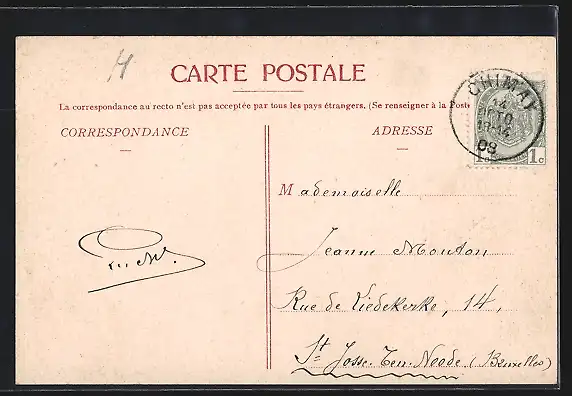 H
CARTE POSTALE
La correspondance au recto n'est pas acceptée par tous les pays étrangers. (Se renseigner à la Poste
CORRESPONDANCE
ADRESSE
CHIMAY
14
OCTO
08
1c
Mademoiselle
Jeanne Moudon
Rue de Liedekerke, 14,
St Josse-Ten-Noode (Bruxelles)